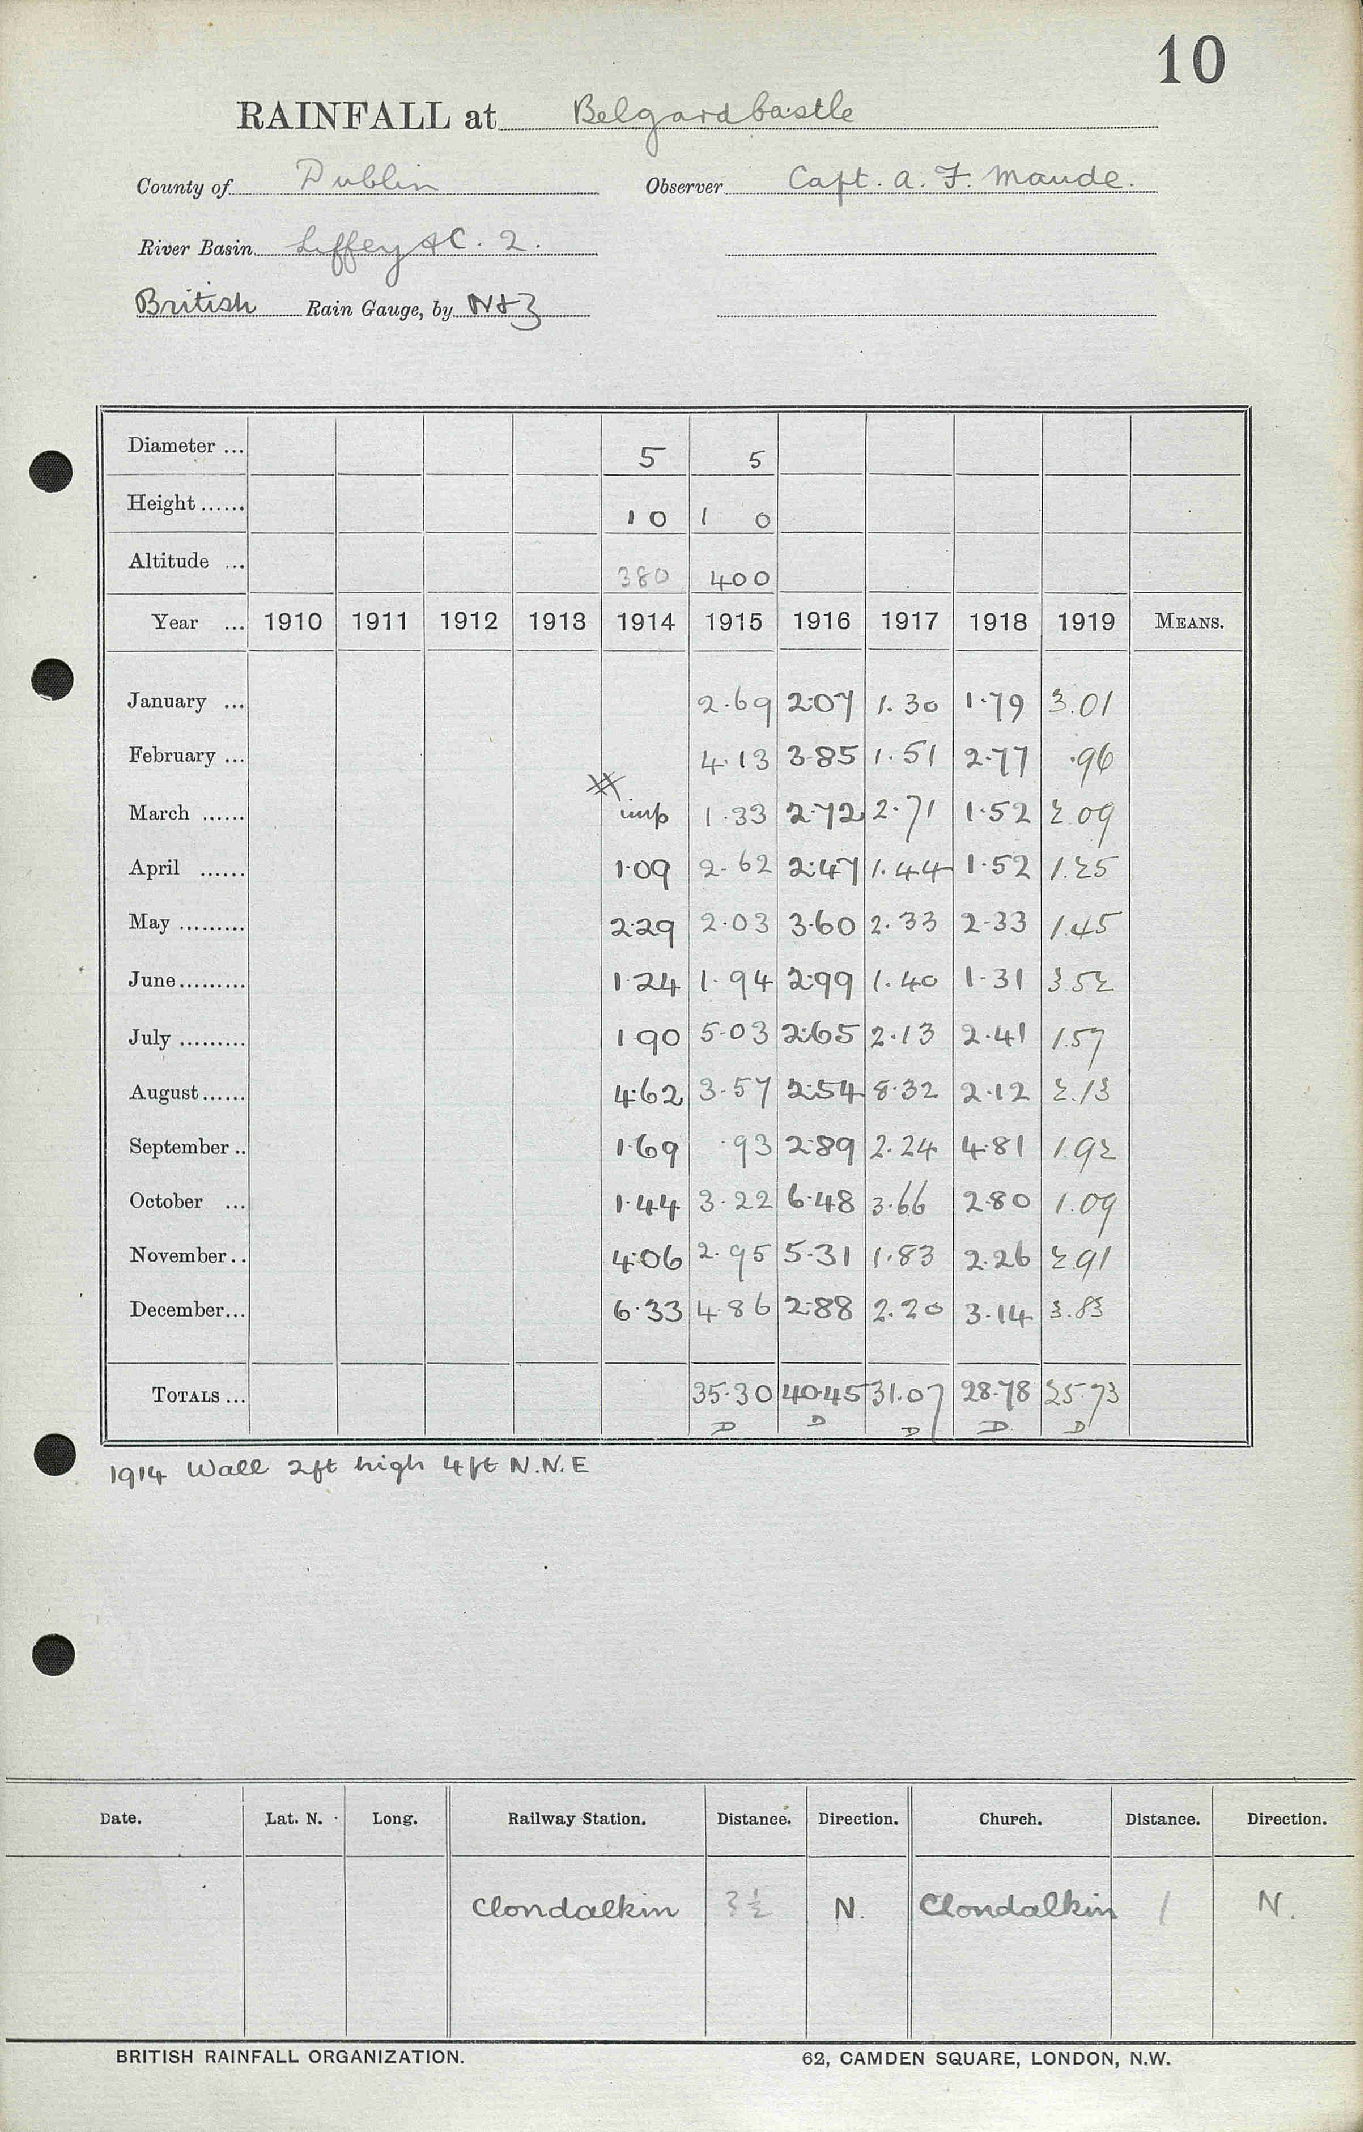 10
RAINFALL at Belgard Castle
County of Dublin Observer Capt. A. F. Maude.
River Basin Liffey &C. 2.
British Rain Gauge, by N&Z
Diameter ... 5 5
Height ...... 1 0 1 0
Altitude ... 380 400
Year ... 1910 1911 1912 1913 1914 1915 1916 1917 1918 1919 MEANS.
January ... 2.69 2.07 1.30 1.79 3.01
February ... 4.13 3.85 1.51 2.77 .96
March ...... imp 1.33 2.72 2.71 1.52 2.09
April ...... 1.09 2.62 2.47 1.44 1.52 1.25
May ......... 2.29 2.03 3.60 2.33 2.33 1.45
June......... 1.24 1.94 2.99 1.40 1.31 3.52
July ......... 1 90 5.03 2.65 2.13 2.41 1.57
August...... 4.62 3.57 2.54 8.32 2.12 2.13
September .. 1.69 .93 2.89 2.24 4.81 1.92
October ... 1.44 3.22 6.48 3.66 2.80 1.09
November .. 4.06 2.95 5.31 1.83 2.26 2.91
December... 6.33 4.86 2.88 2.20 3.14 3.83
TOTALS ... 35.30 40.45 31.07 28.78 25.73
D D D D D
1914 Wall 2ft high 4ft N.N.E
Date. Lat. N. Long. Railway Station. Distance. Direction. Church. Distance. Direction.
Clondalkin 3½ N. Clondalkin 1 N.
BRITISH RAINFALL ORGANIZATION. 62, CAMDEN SQUARE, LONDON, N.W.